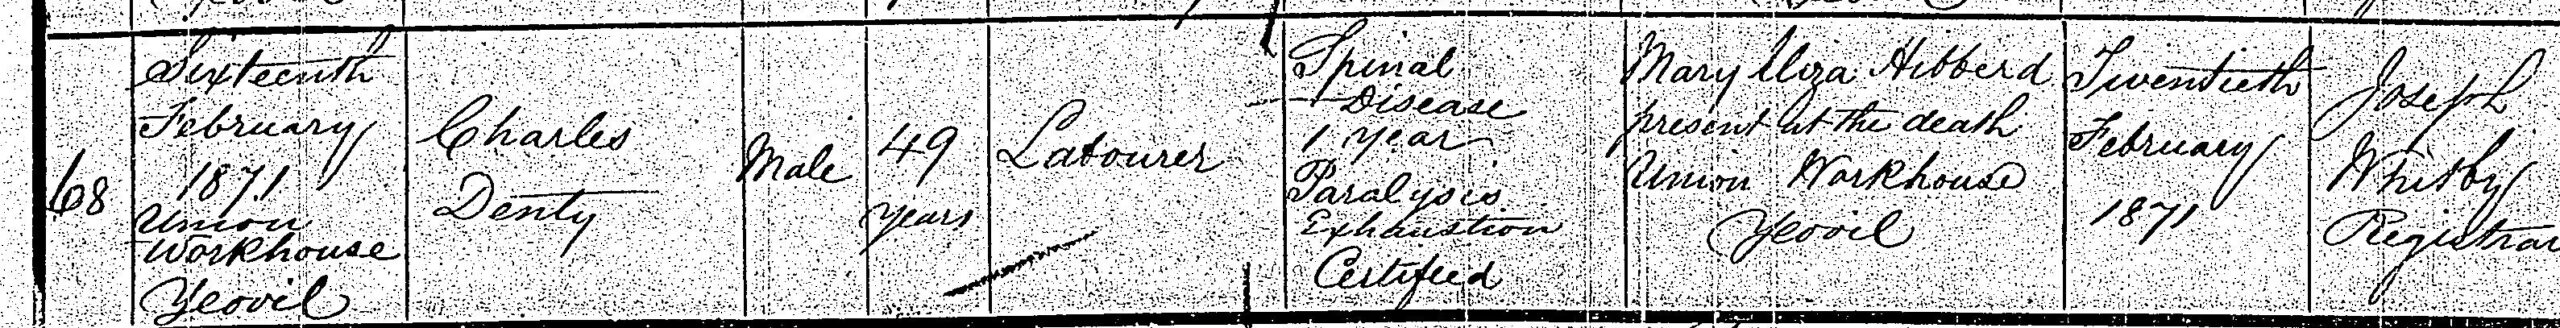 68
Sixteenth
February
1871
Union
Workhouse
Yeovil
Charles
Denty
Male
49
years
Labourer
Spinal
Disease
1 year
Paralysis
Exhaustion
Certified
Mary Eliza Hibberd
present at the death
Union Workhouse
Yeovil
Twentieth
February
1871
Joseph
Whitby
Registrar